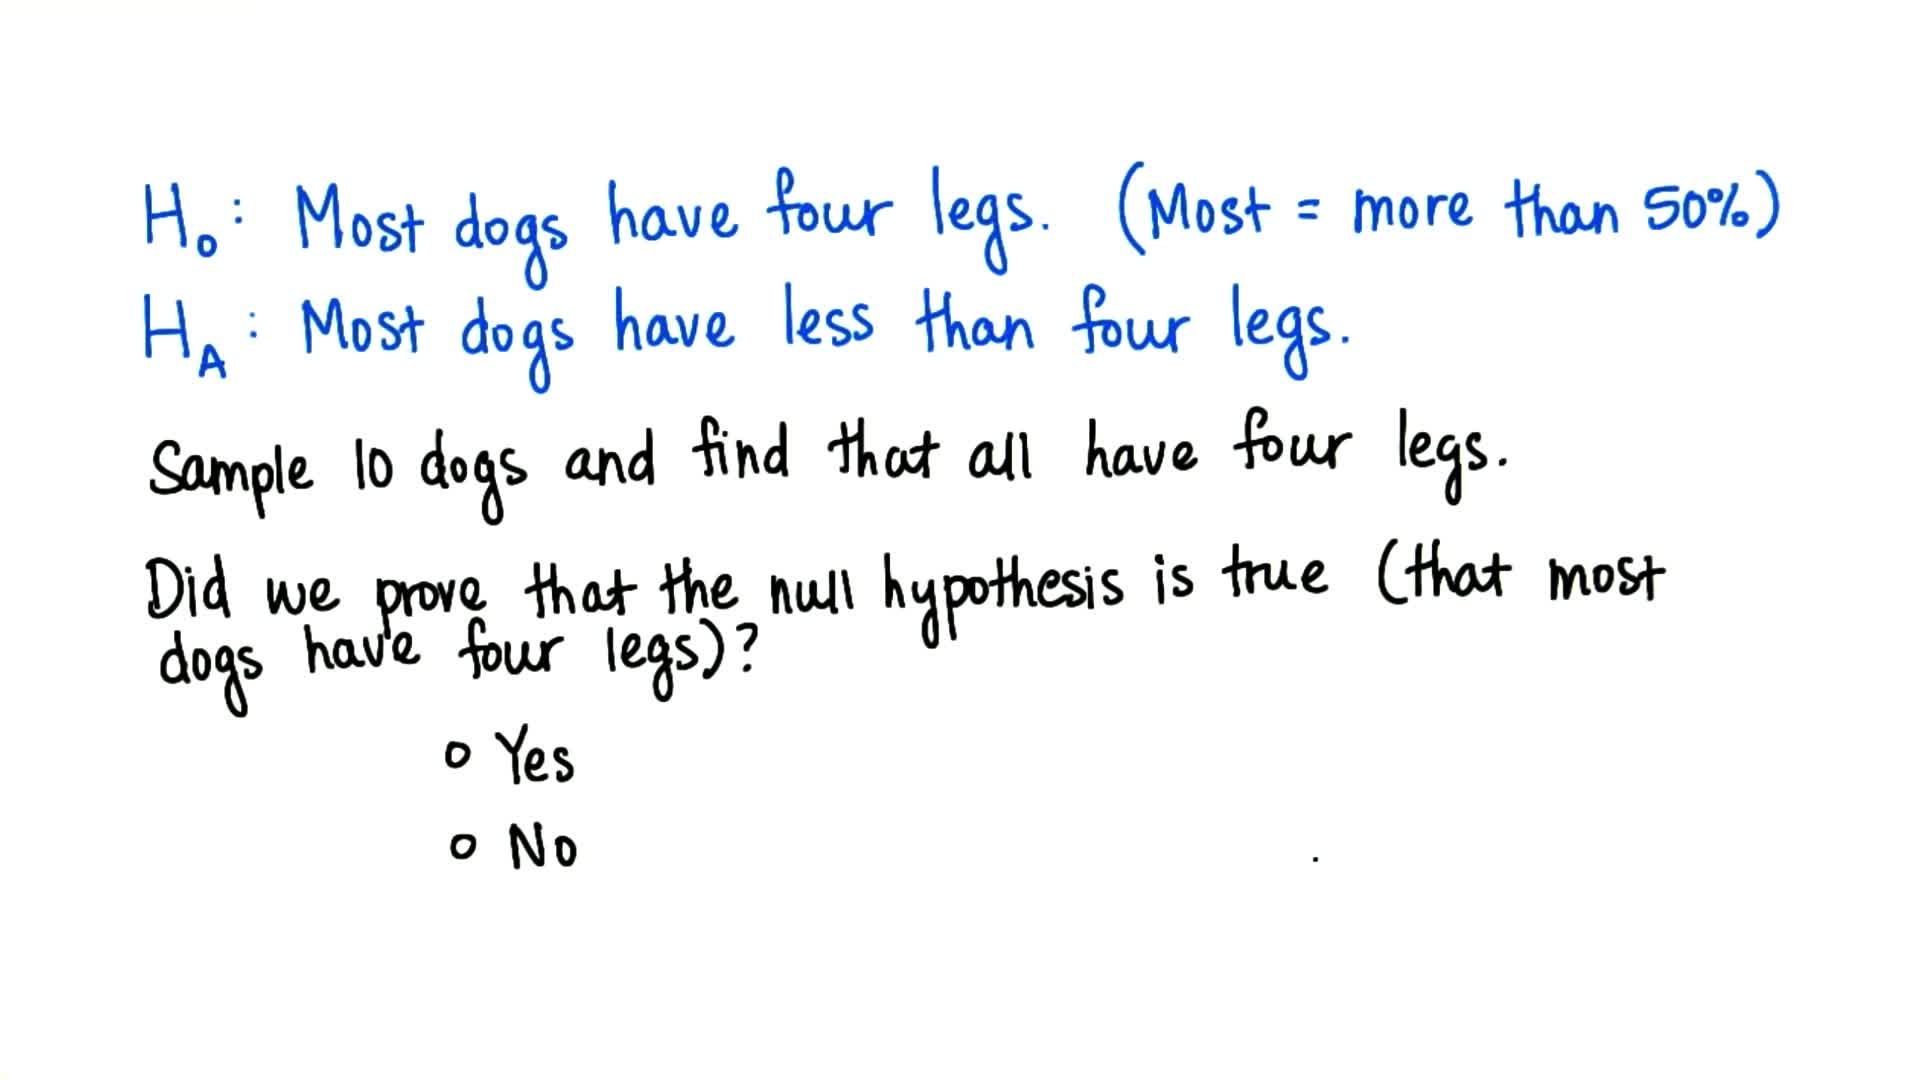 H₀: Most dogs have four legs. (Most = more than 50%)
H_A: Most dogs have less than four legs.
Sample 10 dogs and find that all have four legs.
Did we prove that the null hypothesis is true (that most
dogs have four legs)?
○ Yes
○ No